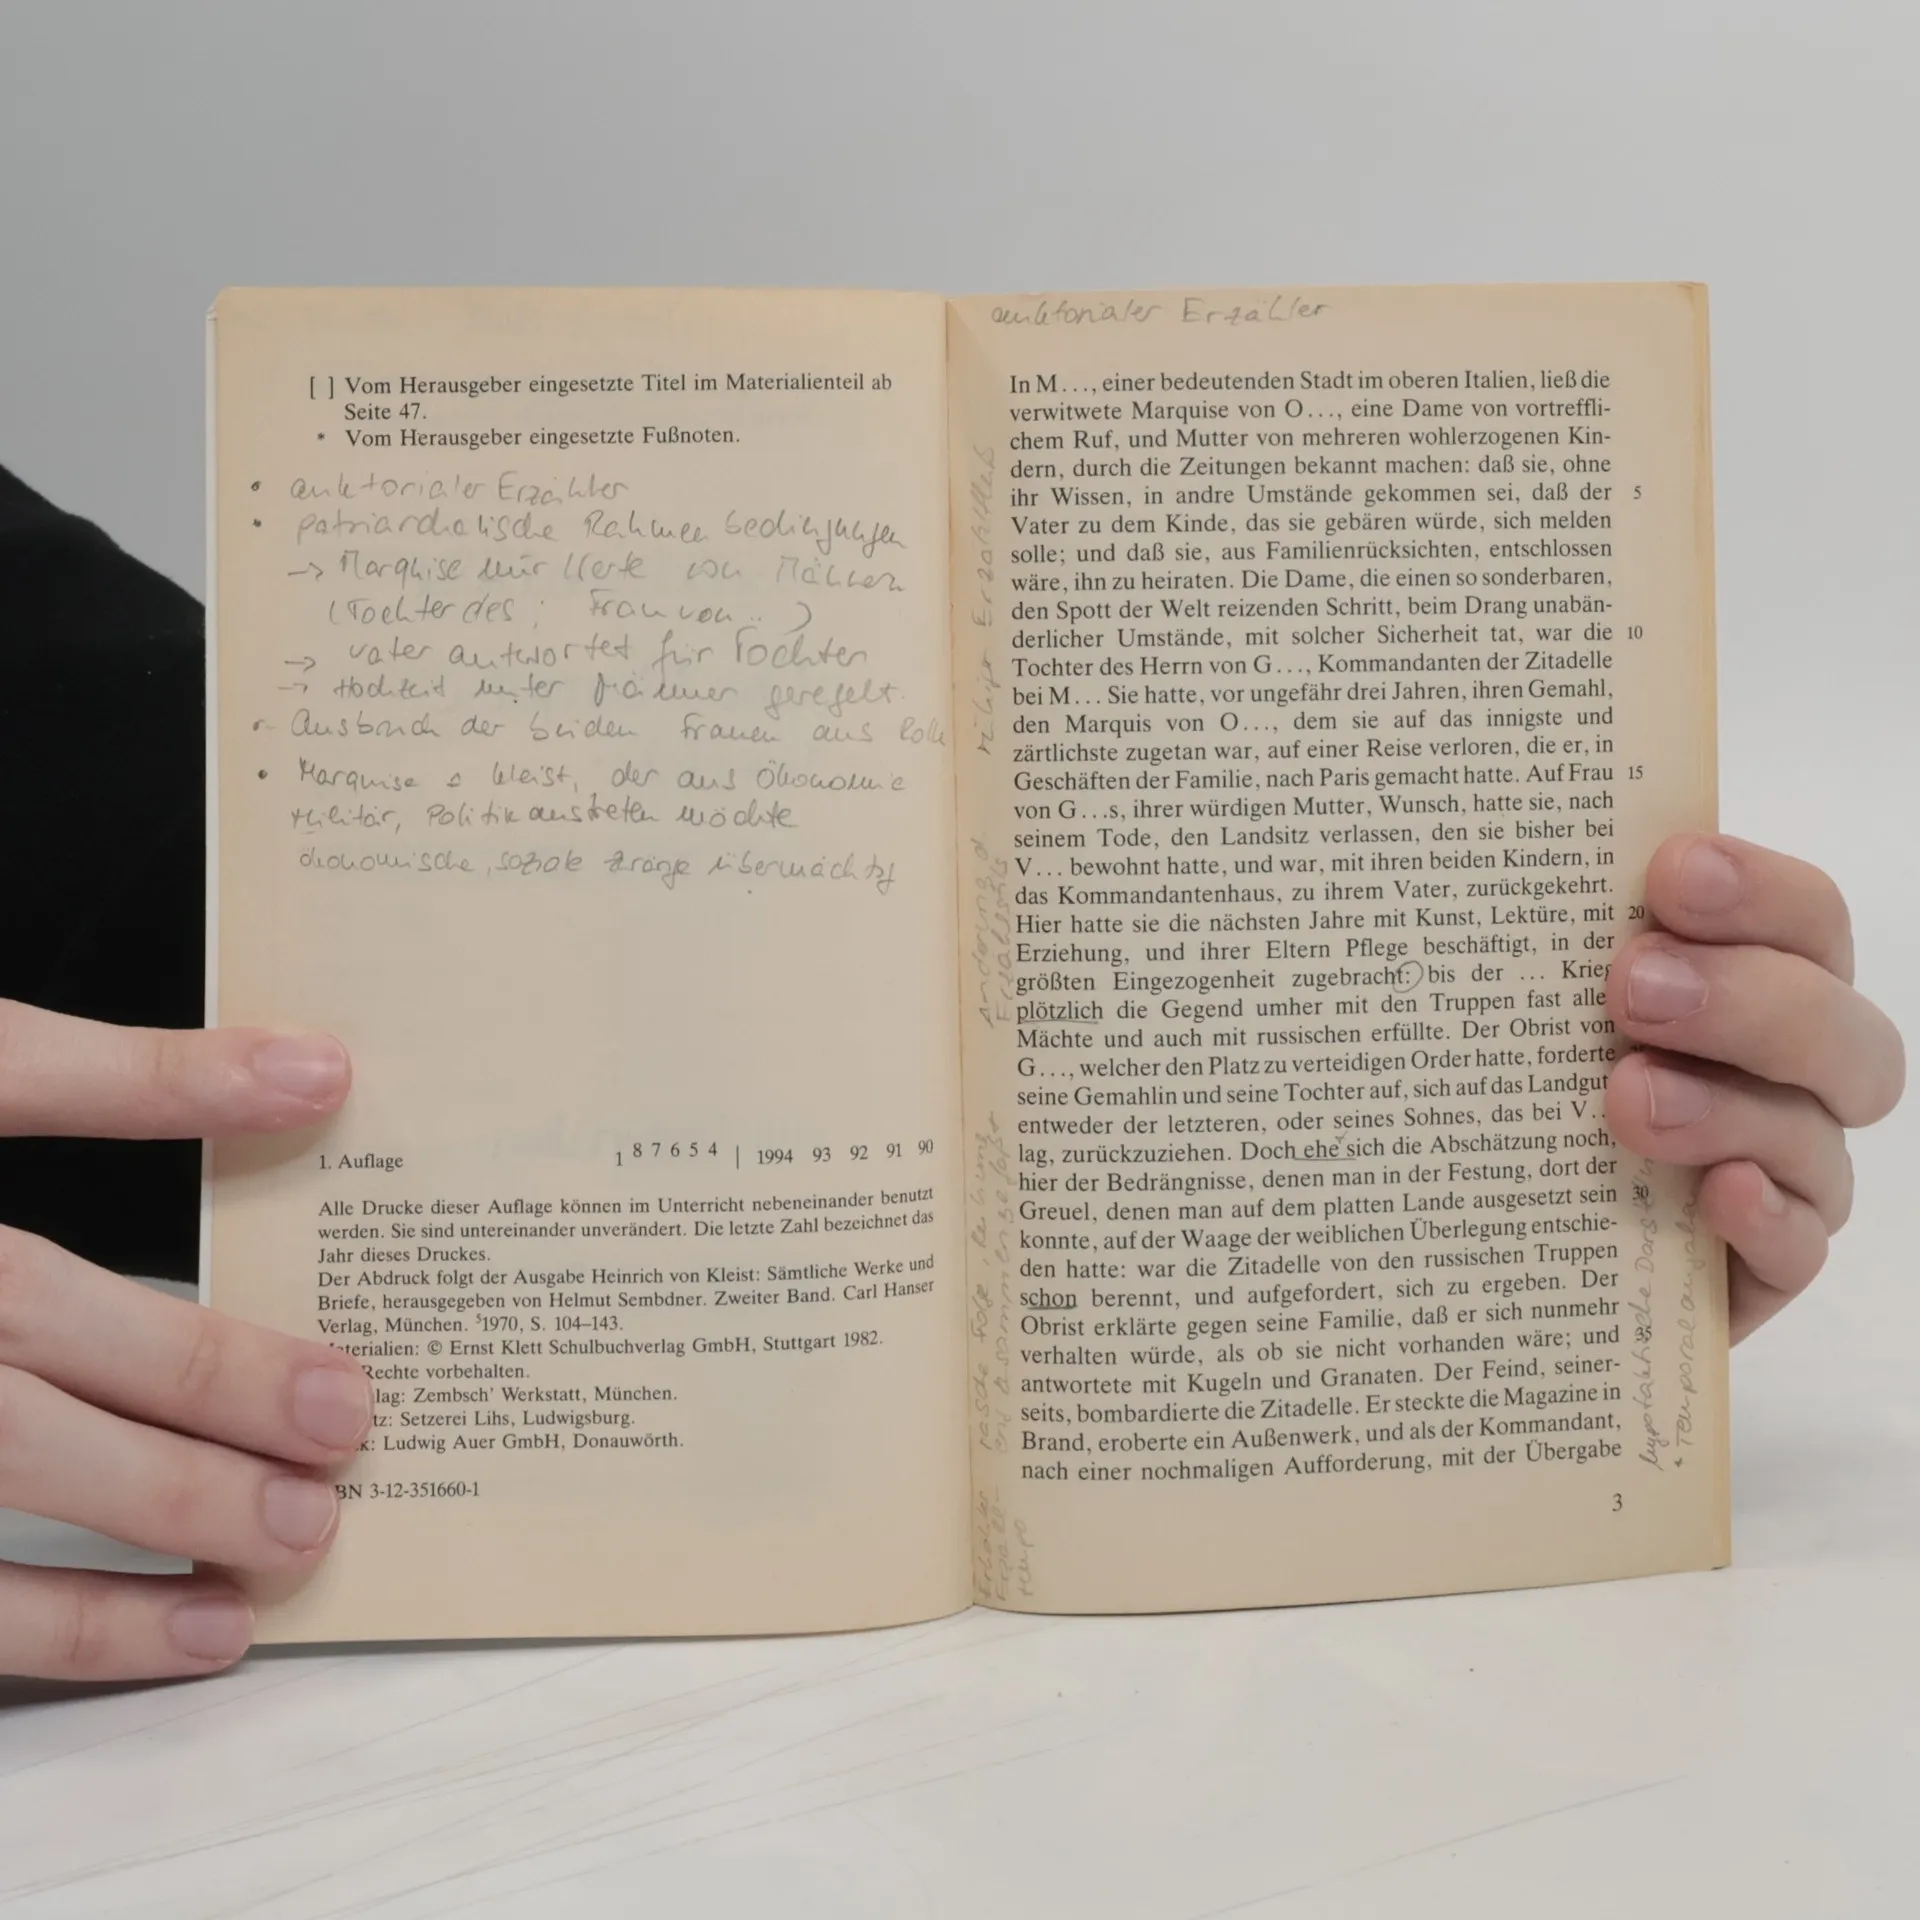 [ ] Vom Herausgeber eingesetzte Titel im Materialienteil ab
Seite 47.
* Vom Herausgeber eingesetzte Fußnoten.
• auktorialer Erzähler
• patriarchalische Rahmenbedingungen
→ Marquise nur Werte von Männern
(Tochter des; Frau von..)
→ Vater antwortet für Tochter
→ Hochzeit unter Männer geregelt.
Ausbruch der beiden Frauen aus Rolle
• Marquise Kleist, der aus Ökonomie
Militär, Politik austreten möchte
ökonomische, soziale Zwänge übermächtig
1. Auflage 1 8 7 6 5 4 | 1994 93 92 91 90
Alle Drucke dieser Auflage können im Unterricht nebeneinander benutzt
werden. Sie sind untereinander unverändert. Die letzte Zahl bezeichnet das
Jahr dieses Druckes.
Der Abdruck folgt der Ausgabe Heinrich von Kleist: Sämtliche Werke und
Briefe, herausgegeben von Helmut Sembdner. Zweiter Band. Carl Hanser
Verlag, München. ⁵1970, S. 104–143.
terialien: © Ernst Klett Schulbuchverlag GmbH, Stuttgart 1982.
Rechte vorbehalten.
lag: Zembsch' Werkstatt, München.
tz: Setzerei Lihs, Ludwigsburg.
k: Ludwig Auer GmbH, Donauwörth.
BN 3-12-351660-1
auktorialer Erzähler
In M..., einer bedeutenden Stadt im oberen Italien, ließ die
verwitwete Marquise von O..., eine Dame von vortreffli-
chem Ruf, und Mutter von mehreren wohlerzogenen Kin-
dern, durch die Zeitungen bekannt machen: daß sie, ohne
ihr Wissen, in andre Umstände gekommen sei, daß der 5
Vater zu dem Kinde, das sie gebären würde, sich melden
solle; und daß sie, aus Familienrücksichten, entschlossen
wäre, ihn zu heiraten. Die Dame, die einen so sonderbaren,
den Spott der Welt reizenden Schritt, beim Drang unabän-
derlicher Umstände, mit solcher Sicherheit tat, war die 10
Tochter des Herrn von G..., Kommandanten der Zitadelle
bei M... Sie hatte, vor ungefähr drei Jahren, ihren Gemahl,
den Marquis von O..., dem sie auf das innigste und
zärtlichste zugetan war, auf einer Reise verloren, die er, in
Geschäften der Familie, nach Paris gemacht hatte. Auf Frau 15
von G...s, ihrer würdigen Mutter, Wunsch, hatte sie, nach
seinem Tode, den Landsitz verlassen, den sie bisher bei
V... bewohnt hatte, und war, mit ihren beiden Kindern, in
das Kommandantenhaus, zu ihrem Vater, zurückgekehrt.
Hier hatte sie die nächsten Jahre mit Kunst, Lektüre, mit 20
Erziehung, und ihrer Eltern Pflege beschäftigt, in der
größten Eingezogenheit zugebracht: bis der ... Krieg
plötzlich die Gegend umher mit den Truppen fast alle
Mächte und auch mit russischen erfüllte. Der Obrist von
G..., welcher den Platz zu verteidigen Order hatte, forderte
seine Gemahlin und seine Tochter auf, sich auf das Landgut
entweder der letzteren, oder seines Sohnes, das bei V..
lag, zurückzuziehen. Doch ehe sich die Abschätzung noch,
hier der Bedrängnisse, denen man in der Festung, dort der
Greuel, denen man auf dem platten Lande ausgesetzt sein 30
konnte, auf der Waage der weiblichen Überlegung entschie-
den hatte: war die Zitadelle von den russischen Truppen
schon berennt, und aufgefordert, sich zu ergeben. Der
Obrist erklärte gegen seine Familie, daß er sich nunmehr
verhalten würde, als ob sie nicht vorhanden wäre; und 35
antwortete mit Kugeln und Granaten. Der Feind, seiner-
seits, bombardierte die Zitadelle. Er steckte die Magazine in
Brand, eroberte ein Außenwerk, und als der Kommandant,
nach einer nochmaligen Aufforderung, mit der Übergabe
3
ruhiger Erzählfluß
Änderung d.
Erzählstils
rasche Folge, Reihung
Erzähltempo
hypotaktische
Temporalangaben